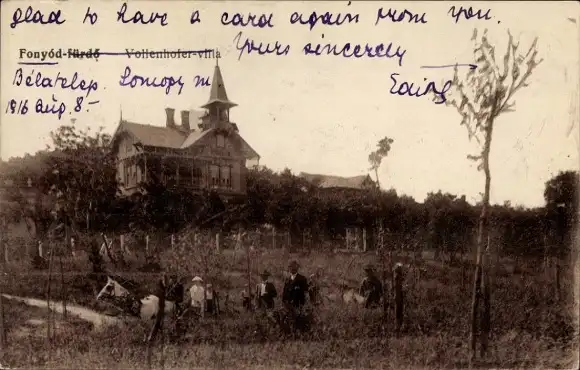 glad to have a card again from you.
Yours sincerely
Fonyód-fürdő Vollenhofer-villa
Bélatelep. Somogy m
1916 Aug. 8.-